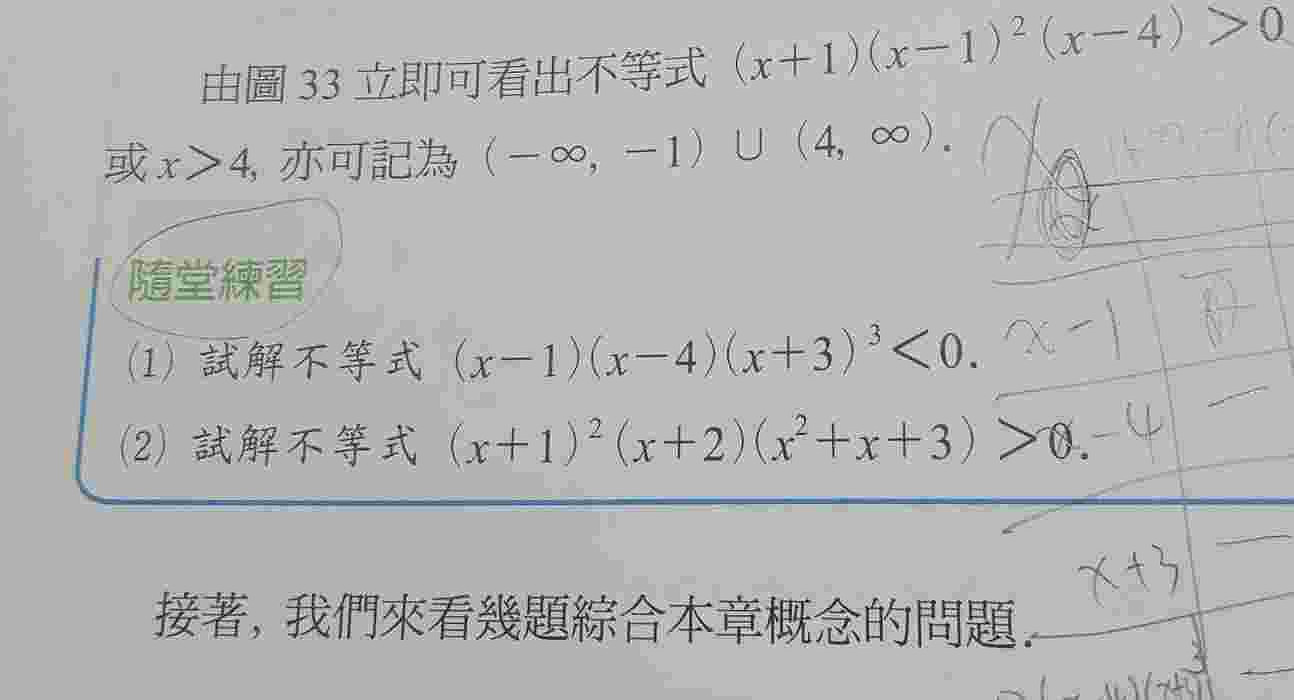 由圖 33 立即可看出不等式 (x+1)(x−1)²(x−4)>0
或 x>4, 亦可記為 (−∞, −1) ∪ (4, ∞).
隨堂練習
(1) 試解不等式 (x−1)(x−4)(x+3)³<0.
x−1
(2) 試解不等式 (x+1)²(x+2)(x²+x+3)>0.
−4
x+3
接著, 我們來看幾題綜合本章概念的問題.